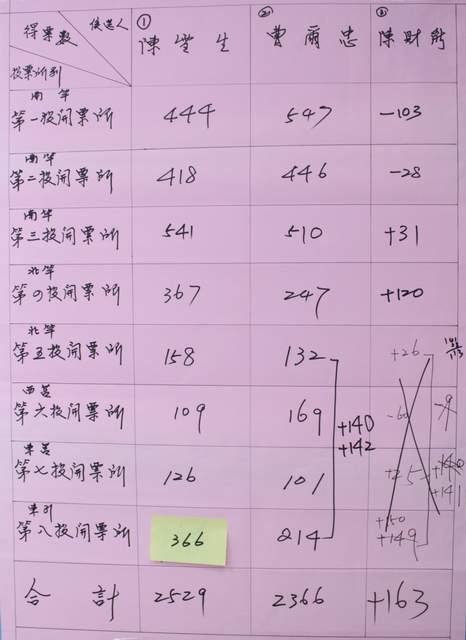 得票數 候選人 ① ② ③
投票所別 陳雪生 曹爾忠 陳財能
南竿
第一投開票所 444 547 -103
南竿
第二投開票所 418 446 -28
南竿
第三投開票所 541 510 +31
北竿
第四投開票所 367 247 +120
北竿
第五投開票所 158 132 +26
西莒
第六投開票所 109 169 -60 -9
+140
+142
東莒
第七投開票所 126 101 +25
+141
東引 +150
第八投開票所 366 214 +149
合計 2529 2366 +163